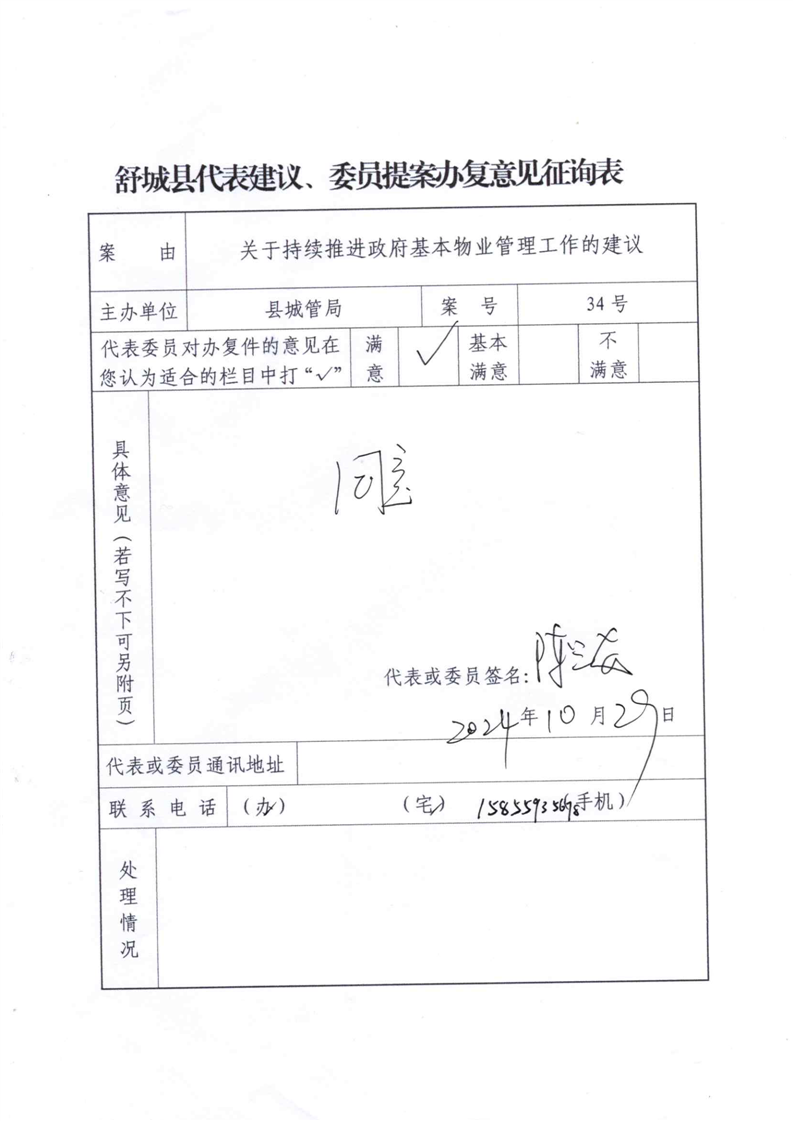 舒城县代表建议、委员提案办复意见征询表
案 由 关于持续推进政府基本物业管理工作的建议
主办单位 县城管局 案 号 34号
代表委员对办复件的意见在您认为适合的栏目中打“√” 满意 √ 基本满意 不满意
具体意见（若写不下可另附页）
同意
代表或委员签名:
2024年10月29日
代表或委员通讯地址
联系电话 （办） （宅） 15855935678（手机）
处理情况